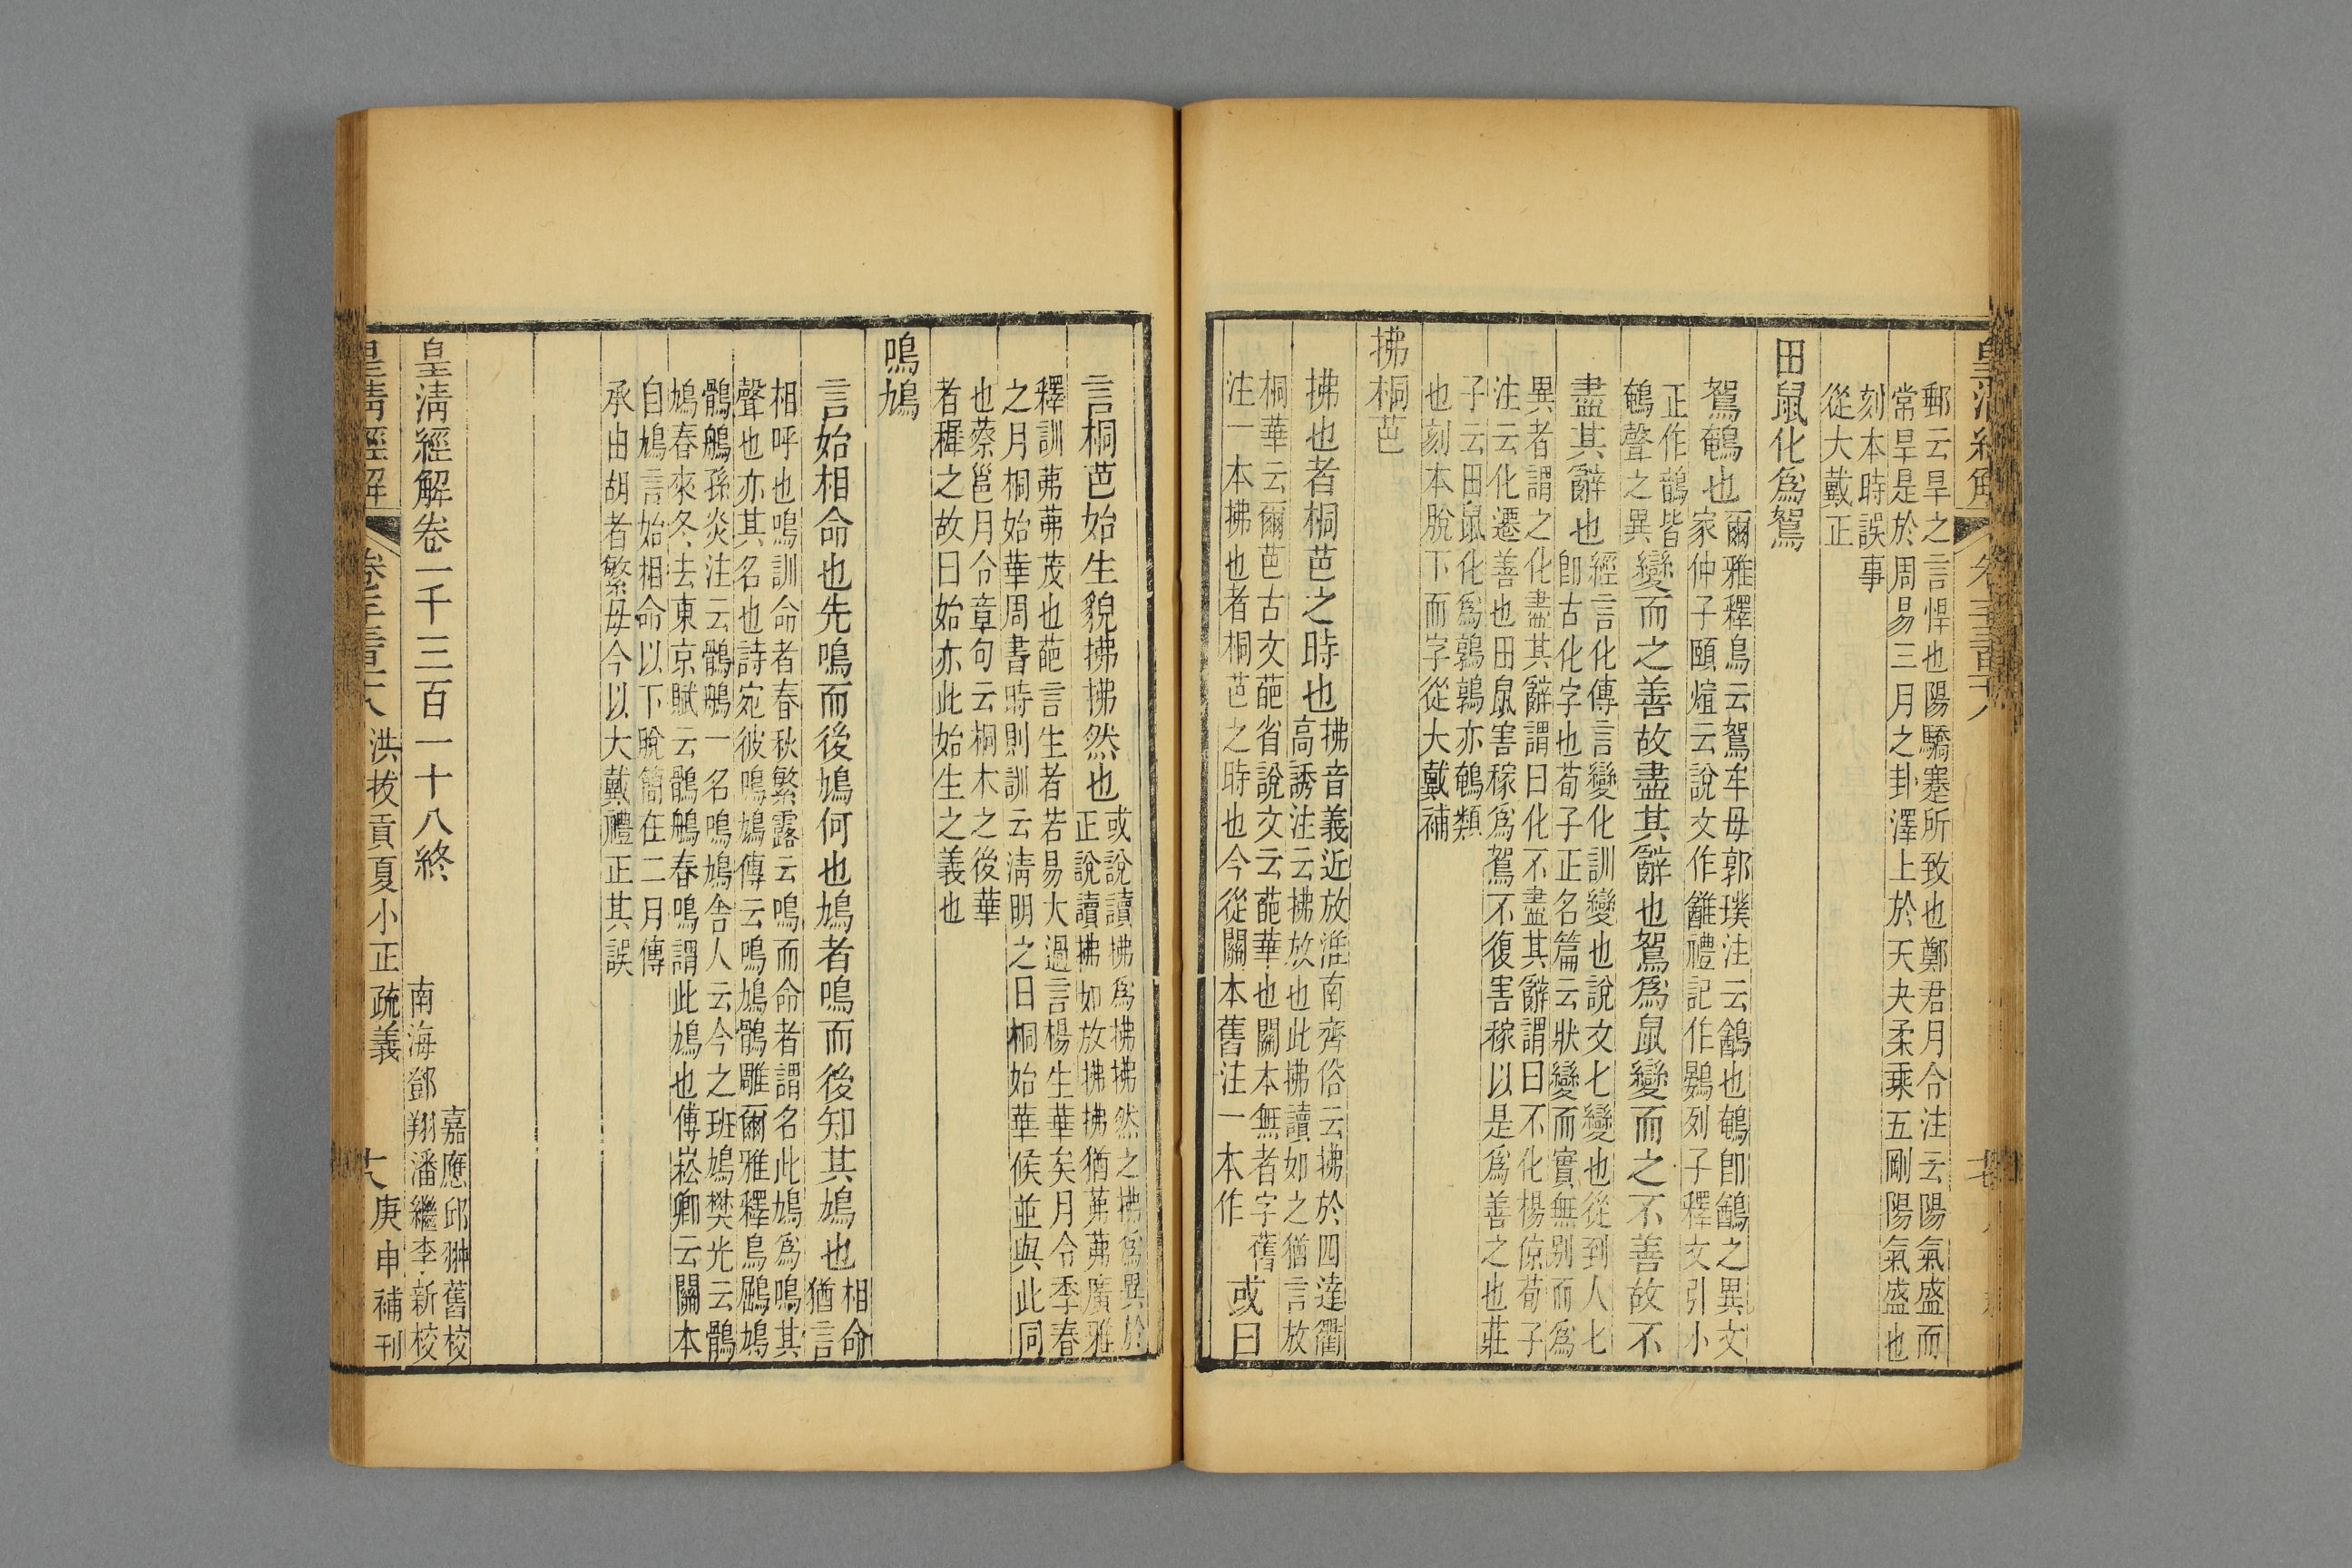 郵云旱之言悍也陽驕蹇所致也鄭君月令注云陽氣盛而
常旱是於周易三月之卦澤上於天夬柔乘五剛陽氣盛也
刻本時誤事
從大戴正
田鼠化爲鴽
鴽鵪也
爾雅釋鳥云鴽牟毋郭璞注云鶕也鵪卽鶕之異文
家仲子頤煊云說文作䨄禮記作鴽列子釋文引小
正作鶕皆
鵪聲之異
變而之善故盡其辭也鴽爲鼠變而之不善故不
盡其辭也
經言化傳言變化訓變也說文七變也從到人七
卽古化字也荀子正名篇云狀變而實無别而爲
異者謂之化盡其辭謂曰化不盡其辭謂曰不化楊倞荀子
注云化遷善也田鼠害稼爲鴽不復害稼以是爲善之也莊
子云田鼠化爲鶉鶉亦鵪類
也刻本脫下而字從大戴補
拂桐芭
拂也者桐芭之時也
拂音義近放淮南齊俗云拂於四達衢
高誘注云拂放也此拂讀如之猶言放
桐華云爾芭古文葩省說文云葩華也關本無者字舊
注一本拂也者桐芭之時也今從關本舊注一本作
或曰
言桐芭始生貌拂拂然也
或說讀拂爲拂拂然之拂爲異於
正說讀拂如放拂拂猶茀茀廣雅
釋訓茀茀茂也葩言生者若易大過言楊生華矣月令季春
之月桐始華周書時則訓云清明之日桐始華候並與此同
也蔡邕月令章句云桐木之後華
者穉之故曰始亦此始生之義也
鳴鳩
言始相命也先鳴而後鳩何也鳩者鳴而後知其鳩也
相命
猶言
相呼也鳴訓命者春秋繁露云鳴而命者謂名此鳩爲鳴其
聲也亦其名也詩宛彼鳴鳩傳云鳴鳩鶻雕爾雅釋鳥鶌鳩
鶻鵃孫炎注云鶻鵃一名鳴鳩舍人云今之班鳩樊光云鶻
鳩春來冬去東京賦云鶻鵃春鳴謂此鳩也傅崧卿云關本
自鳩言始相命以下脫簡在二月傳
承由胡者繁毋今以大戴禮正其誤
皇淸經解卷一千三百一十八終
嘉應邱翀舊校
南海鄧翔潘繼李新校
皇淸經解
洪拔貢夏小正疏義
庚申補刊